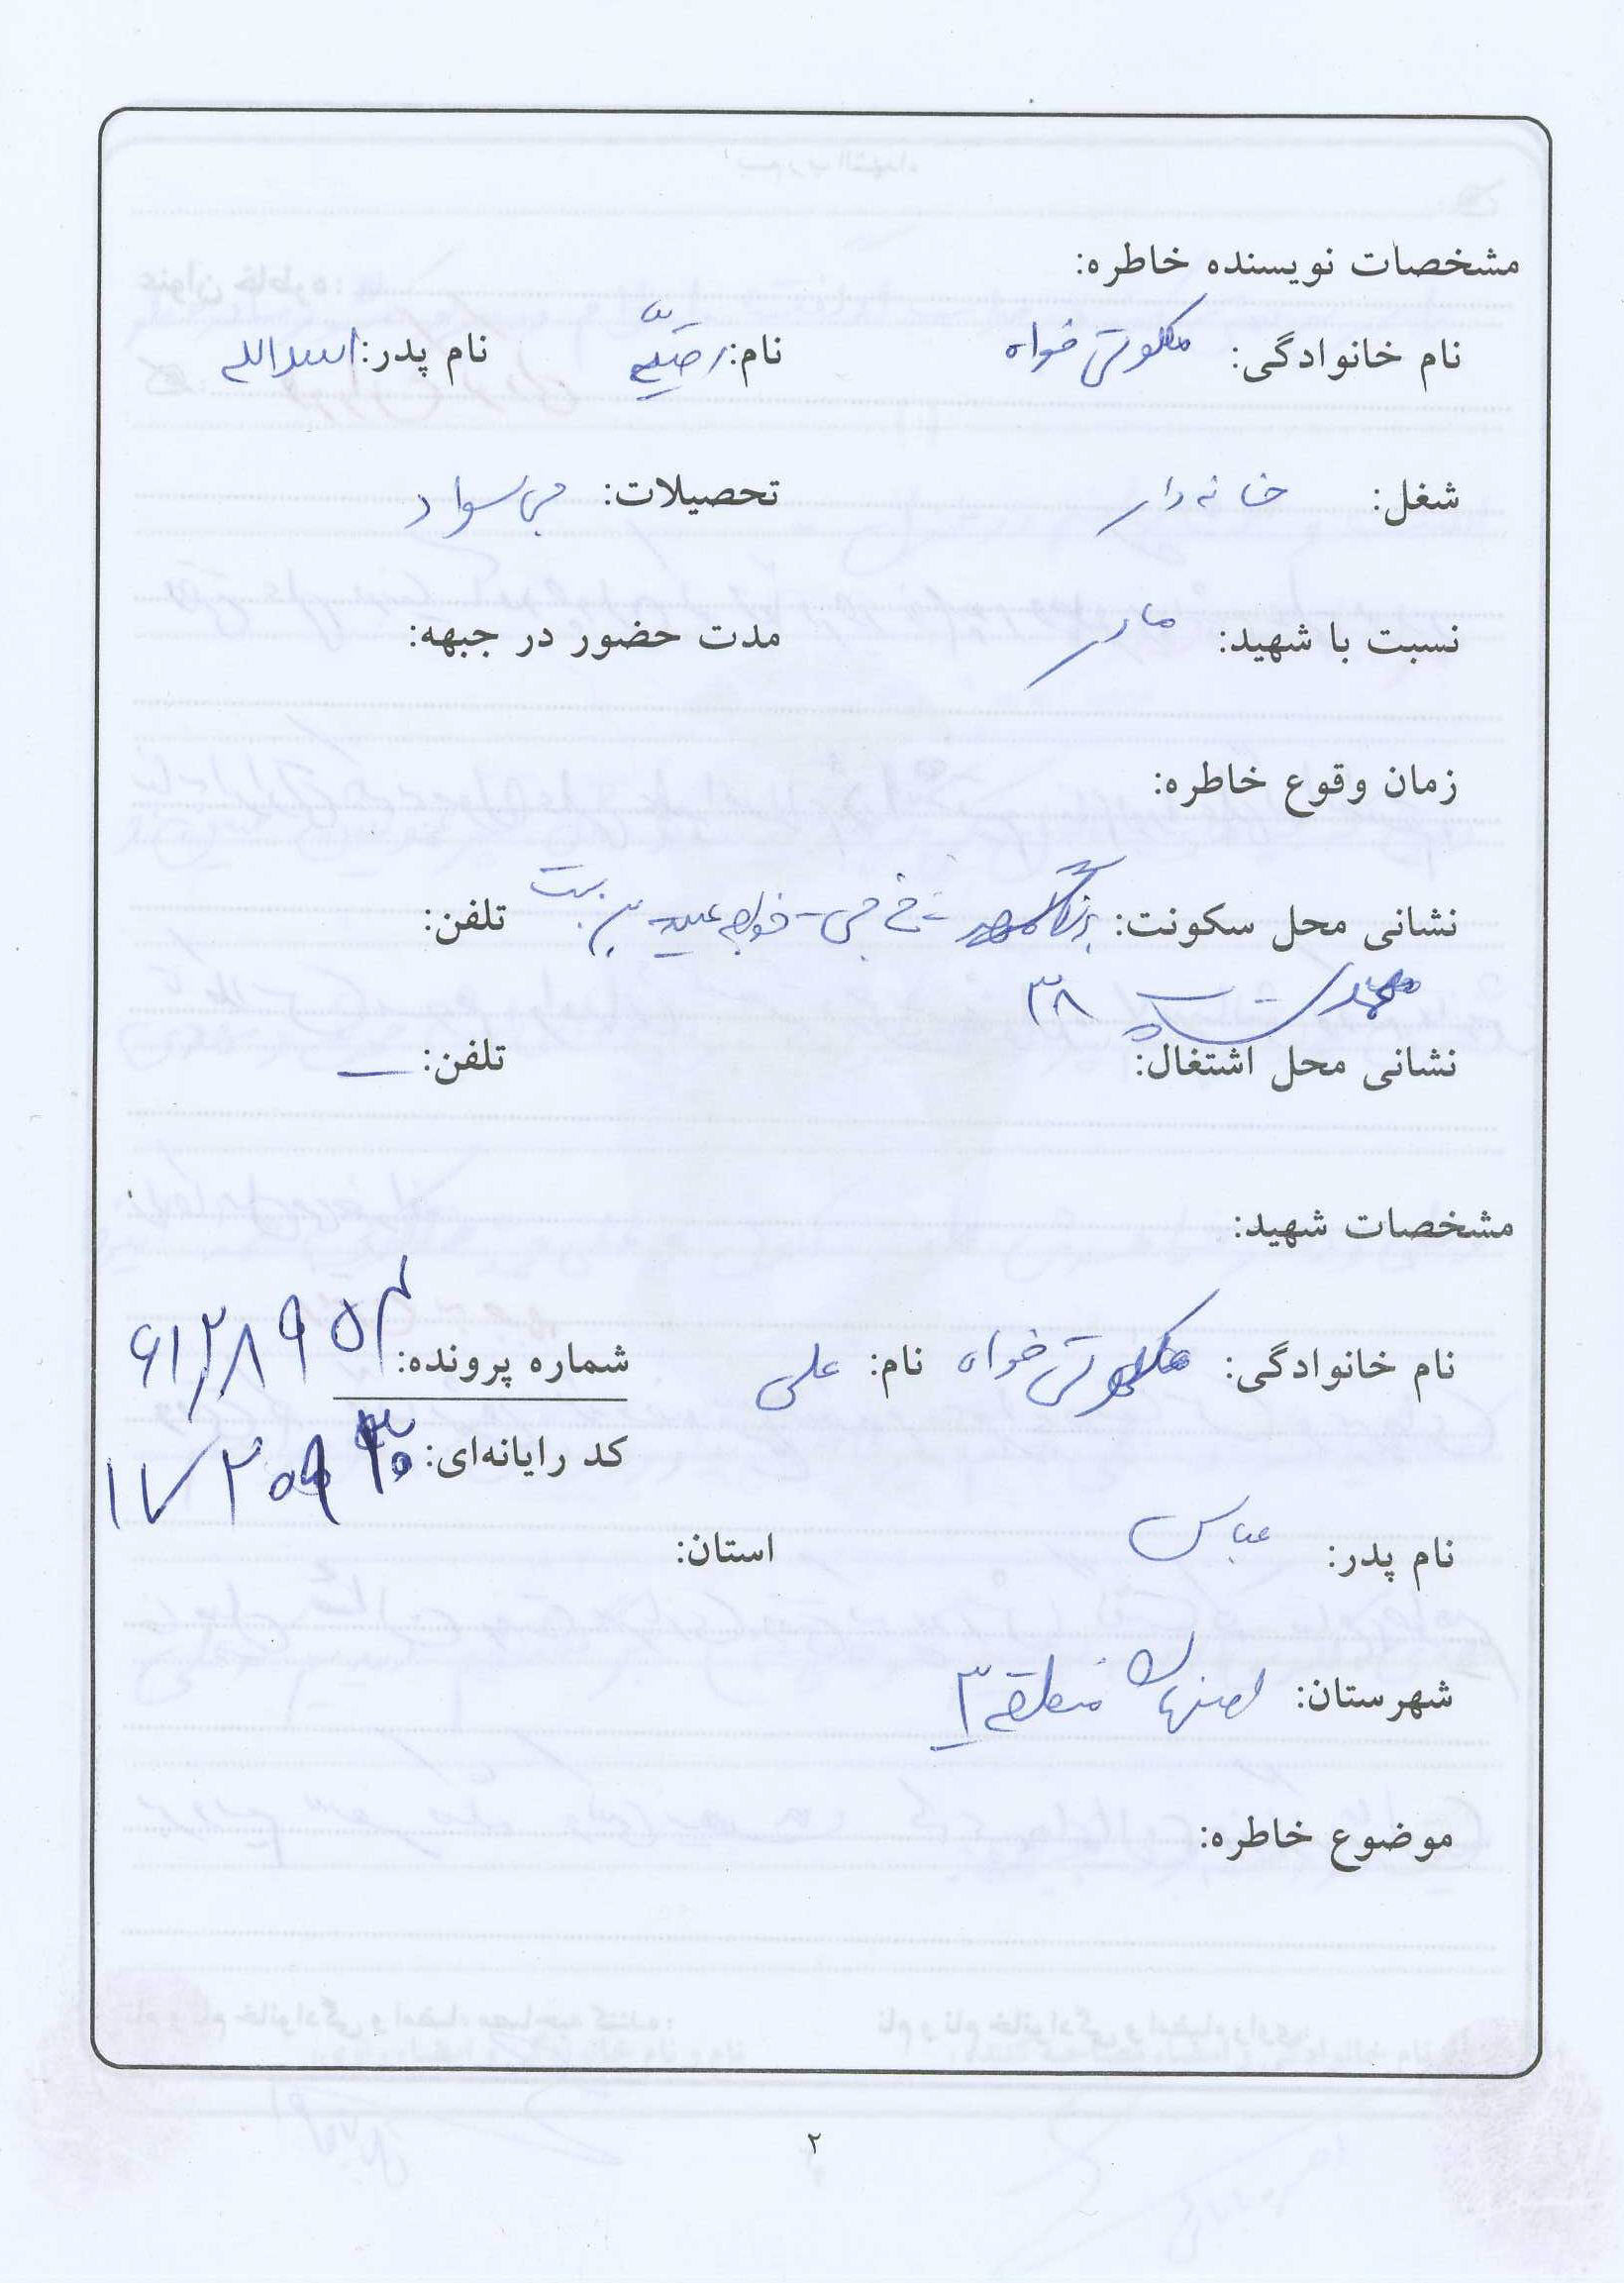 مشخصات نویسنده خاطره:
نام خانوادگی: ملکوتی خواه نام: رقیّه نام پدر: اسدالله
شغل: خانه دار تحصیلات: بی سواد
نسبت با شهید: مادر مدت حضور در جبهه:
زمان وقوع خاطره:
نشانی محل سکونت: خ جی - خواجه عمید - بن بست تلفن:
پ ۳۸
نشانی محل اشتغال: تلفن: —
مشخصات شهید:
نام خانوادگی: ملکوتی خواه نام: علی شماره پرونده:
کد رایانه‌ای:
نام پدر: عباس استان:
شهرستان: اصفهان منطقه ۳
موضوع خاطره:
۲